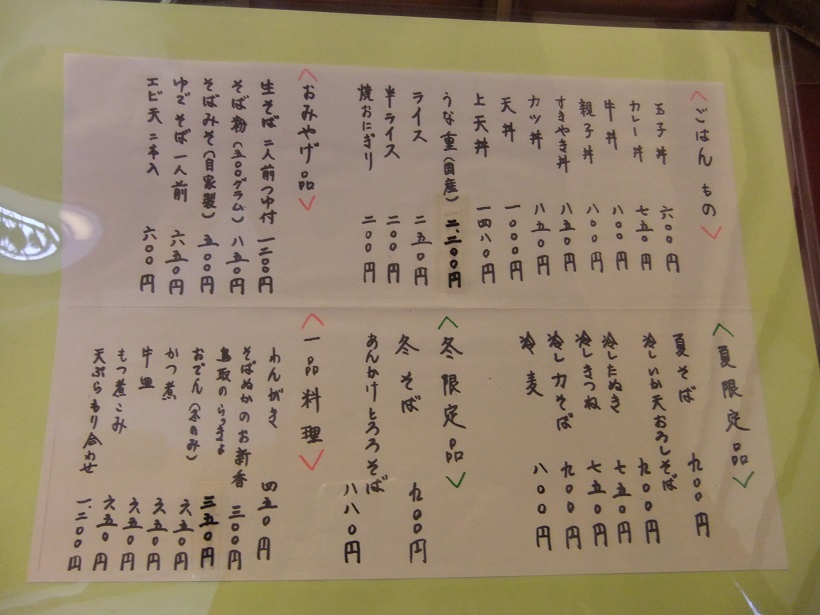 <ごはんもの>
玉子丼 六〇〇円
カレー丼 七五〇円
牛丼 八〇〇円
親子丼 八〇〇円
すきやき丼 八五〇円
カツ丼 八五〇円
天丼 一〇〇〇円
上天丼 一四八〇円
うな重(国産) 二,二〇〇円
ライス 二五〇円
半ライス 二〇〇円
焼おにぎり 二〇〇円
<おみやげ品>
生そば 二人前つゆ付 一二〇〇円
そば粉(五〇〇グラム) 八五〇円
そばみそ(自家製) 五〇〇円
ゆでそば一人前 六五〇円
エビ天二本入 六〇〇円
<夏限定品>
夏そば 九〇〇円
冷しいか天おろしそば 九〇〇円
冷したぬき 七五〇円
冷しきつね 七五〇円
冷し力そば 九〇〇円
冷麦 八〇〇円
<冬限定品>
冬そば 九〇〇円
あんかけとろろそば 八八〇円
<一品料理>
わんがき 四五〇円
そばぬかのお新香 三〇〇円
鳥取のらっきょ 三五〇円
おでん(冬のみ) 六五〇円
かつ煮 六五〇円
牛皿 六五〇円
もつ煮こみ 六五〇円
天ぷらもり合わせ 一,二〇〇円